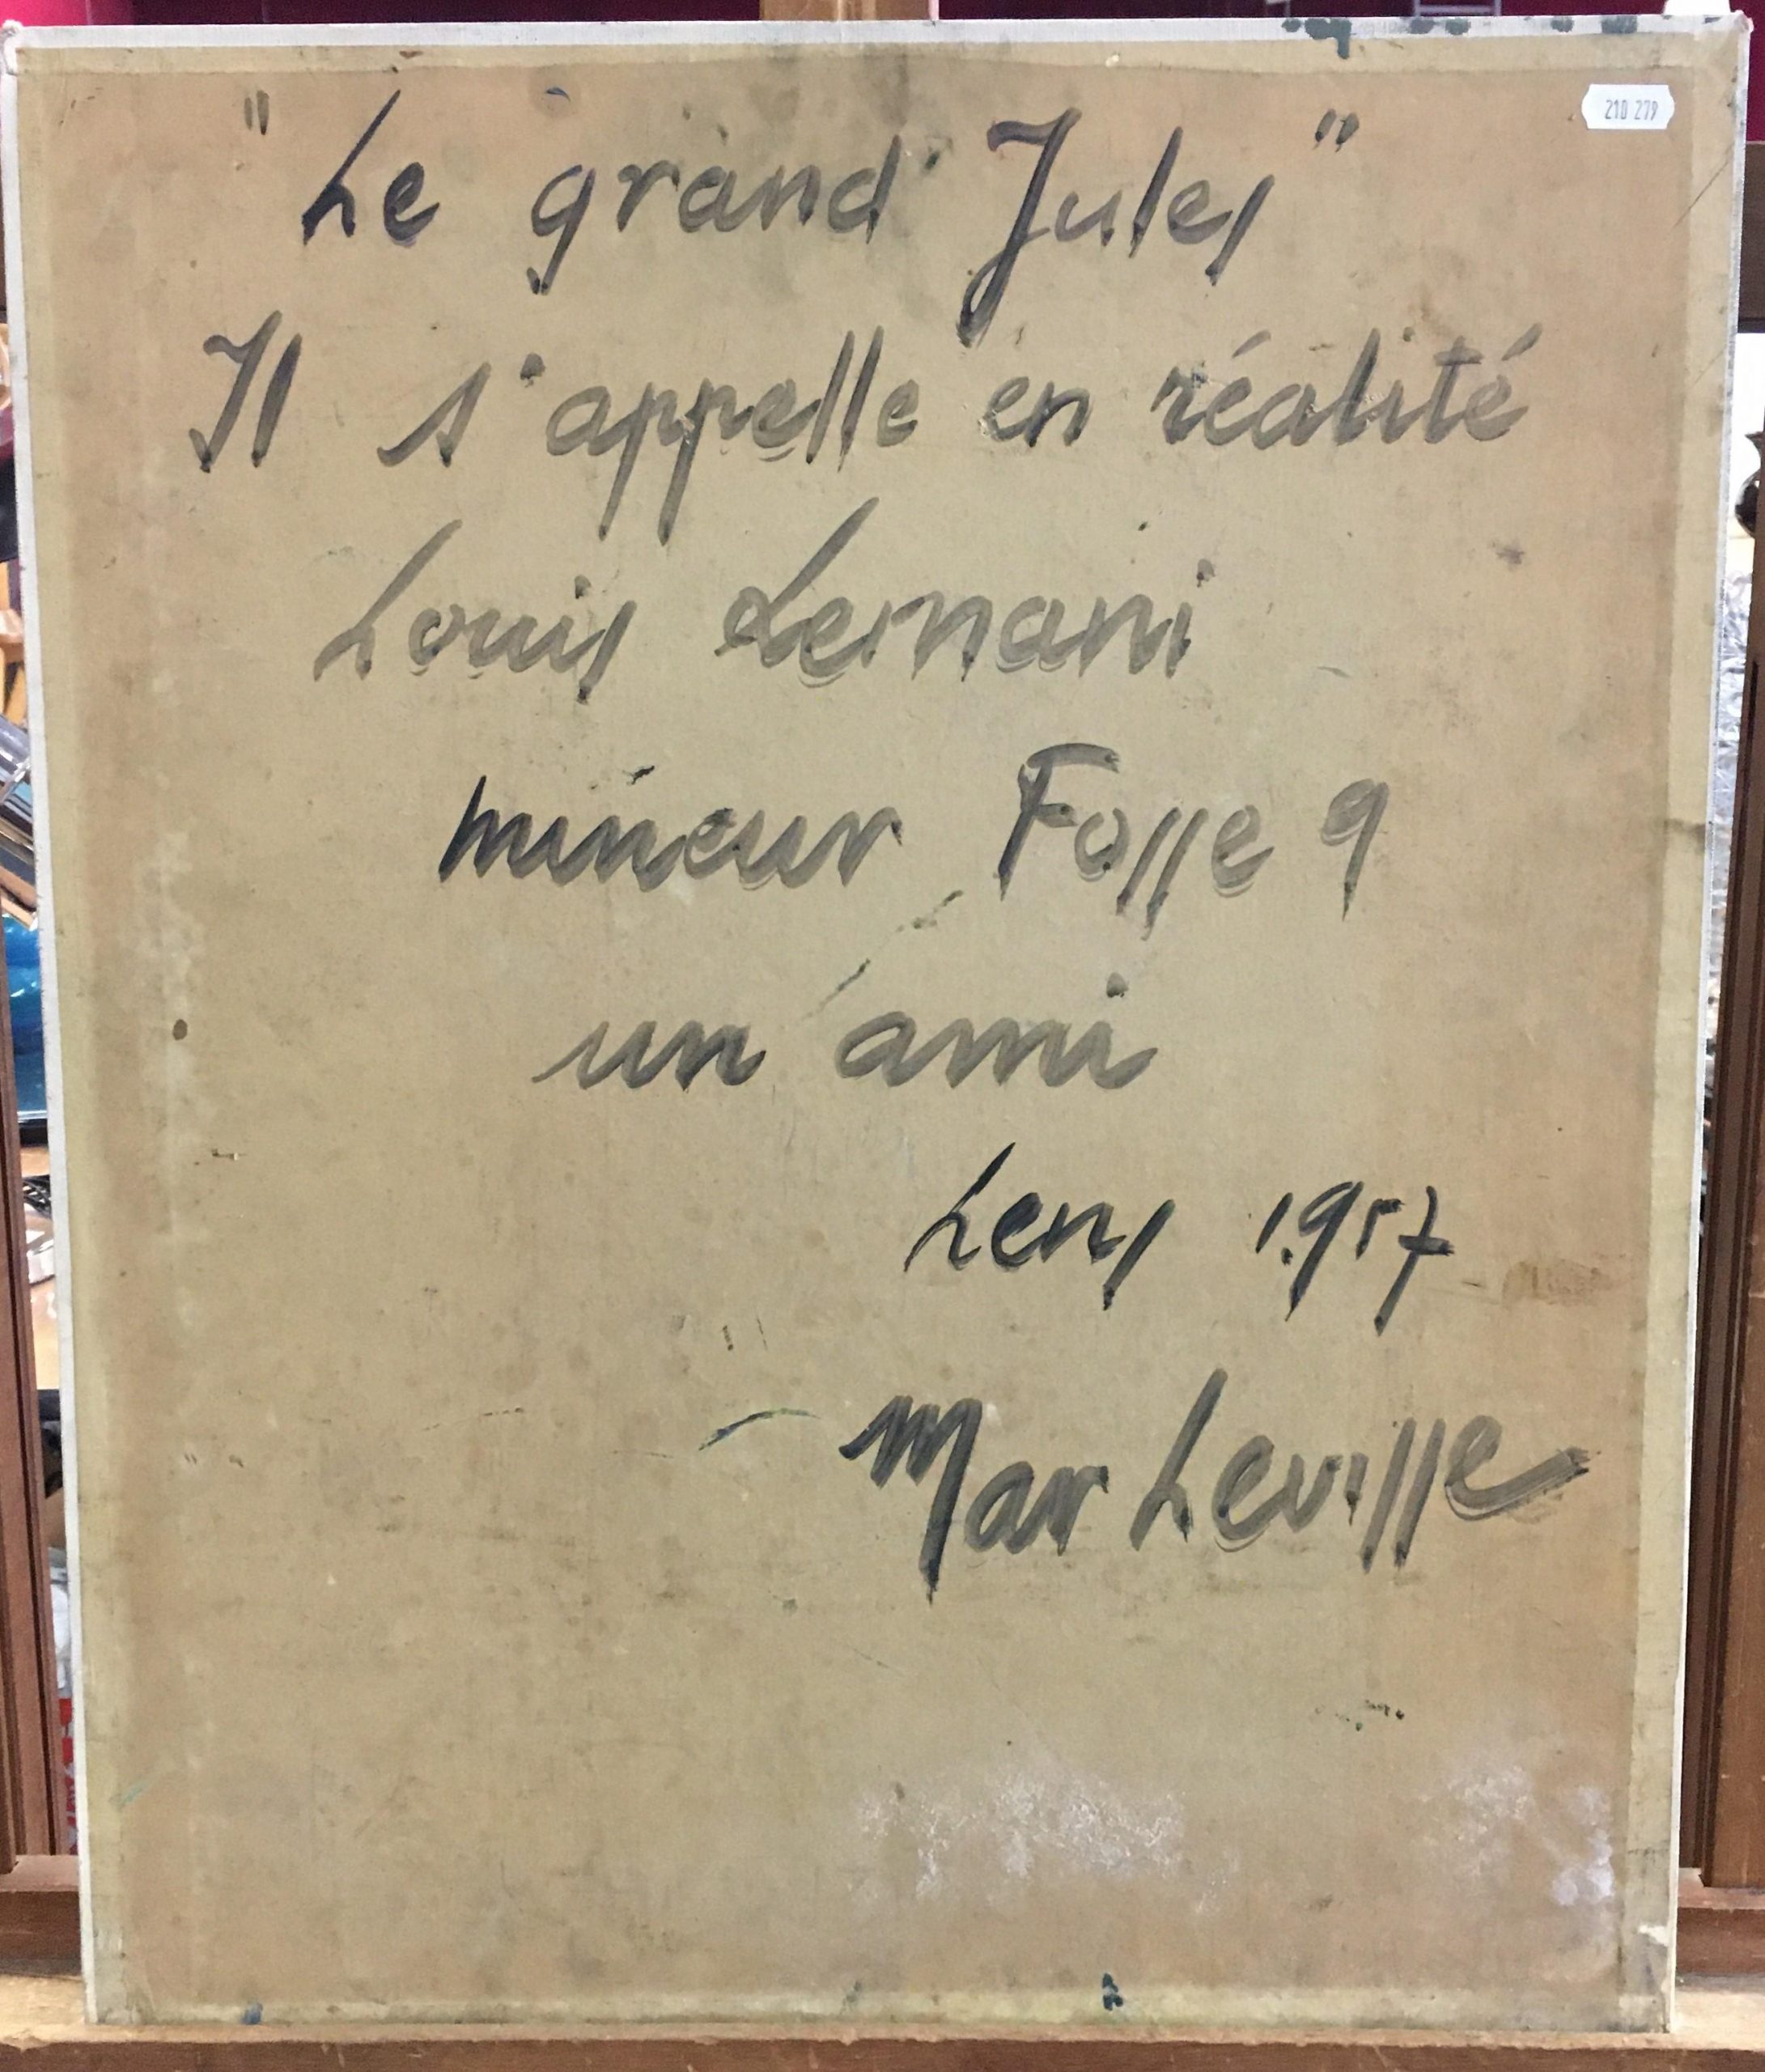 210 279
"Le grand Jules"
Il s'appelle en réalité
Louis Lernani
mineur Fosse 9
un ami
Lens 1.957
Mar Leville